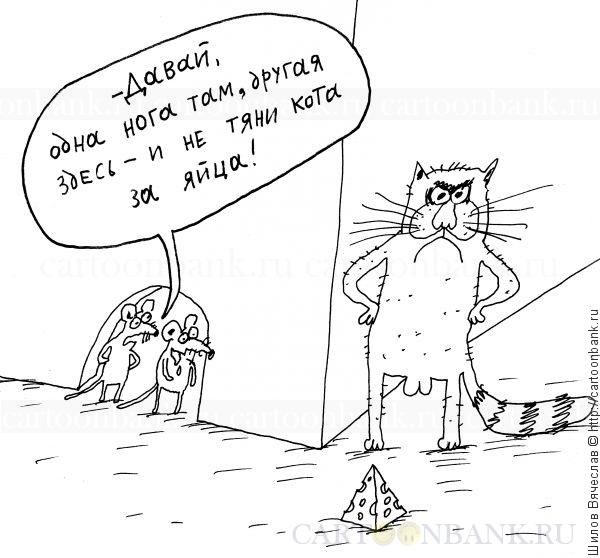 - Давай,
одна нога там, другая
здесь - и не тяни кота
за яйца!
cartoonbank.ru cartoonbank.ru
cartoonbank.ru cartoonbank.ru
cartoonbank.ru
CARTOONBANK.RU
Шилов Вячеслав © http://cartoonbank.ru